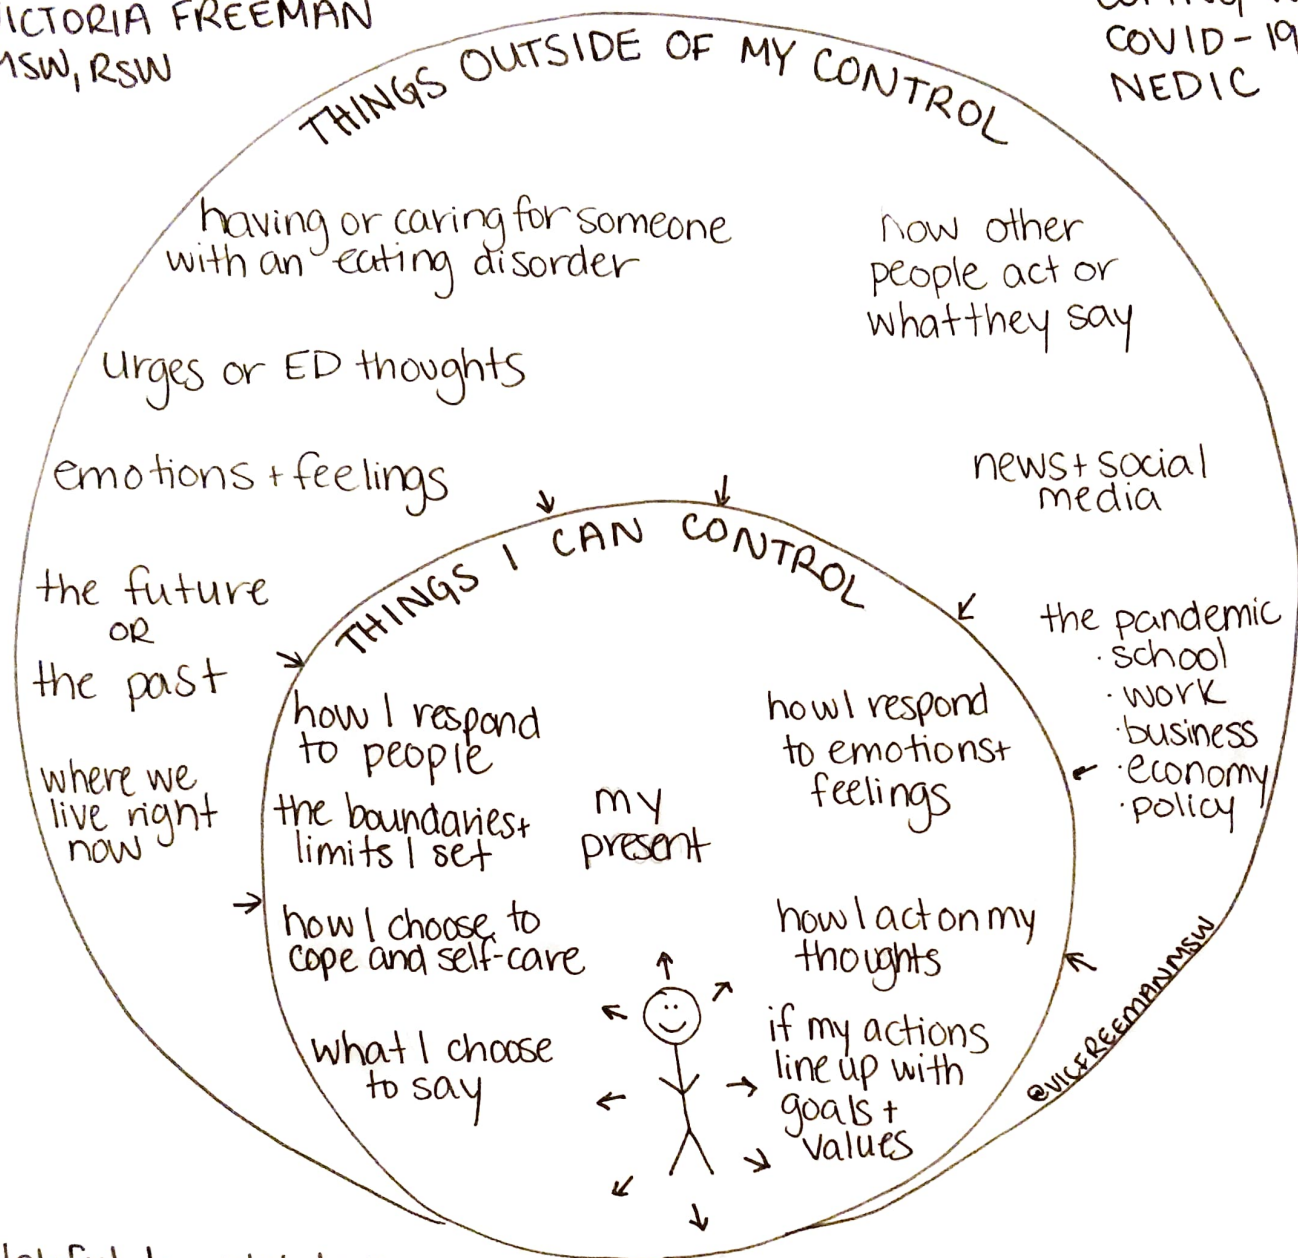 VICTORIA FREEMAN
MSW, RSW
COVID-19
NEDIC
THINGS OUTSIDE OF MY CONTROL
having or caring for someone
with an eating disorder
how other
people act or
what they say
urges or ED thoughts
emotions + feelings
news + social
media
the future
OR
the past
where we
live right
now
the pandemic
· school
· work
· business
· economy
· policy
THINGS I CAN CONTROL
how I respond
to people
the boundaries +
limits I set
how I choose to
cope and self-care
what I choose
to say
my
present
how I respond
to emotions +
feelings
how I act on my
thoughts
if my actions
line up with
goals +
values
@VICFREEMANMSW